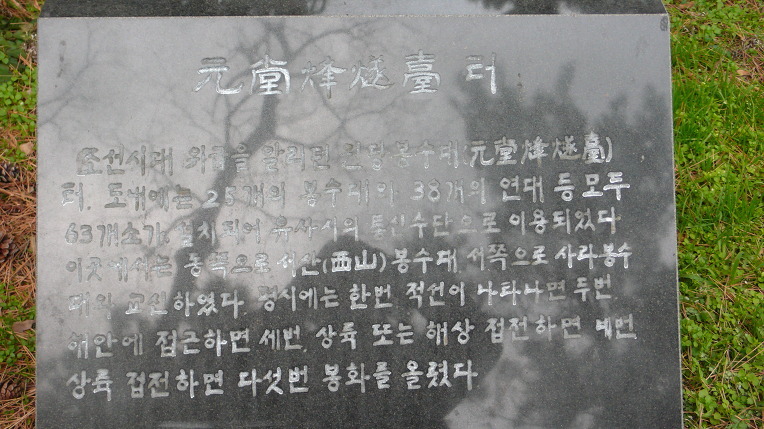 元堂烽燧臺 터
조선시대 위급을 알리던 원당봉수대(元堂烽燧臺)
터. 도내에는 25개의 봉수대와 38개의 연대 등 모두
63개소가 설치되어 유사시의 통신수단으로 이용되었다
이곳에서는 동쪽으로 서산(西山)봉수대, 서쪽으로 사라봉수
대와 교신하였다. 평시에는 한번 적선이 나타나면 두번
해안에 접근하면 세번, 상륙 또는 해상 접전하면 네번,
상륙 접전하면 다섯번 봉화를 올렸다